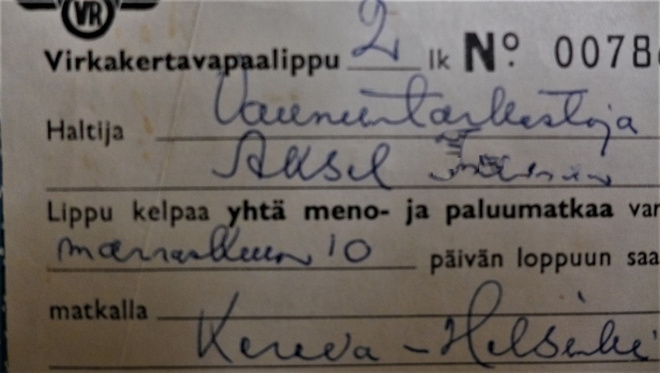 VR
Virkakertavapaalippu 2 lk Nº 0078
Haltija Vaununtarkastaja
Aksel
Lippu kelpaa yhtä meno- ja paluumatkaa
marraskuun 10 päivän loppuun saa
matkalla
Kerava - Helsinki